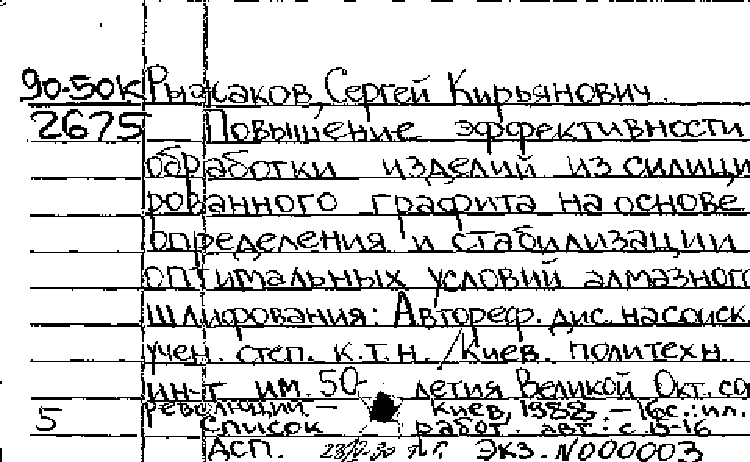 90-50к Рыжаков, Сергей Кирьянович.
2675 Повышение эффективности
обработки изделий из силици
рованного графита на основе
определения и стабилизации
оптимальных условий алмазного
шлифования: Автореф. дис. на соиск.
учен. степ. к.т.н. / Киев. политехн.
ин-т им. 50-летия Великой Окт. со
революции. — Киев, 1988. — 16с.: ил.
5 список работ. авт.: с.15-16
Асп. Экз. N000003